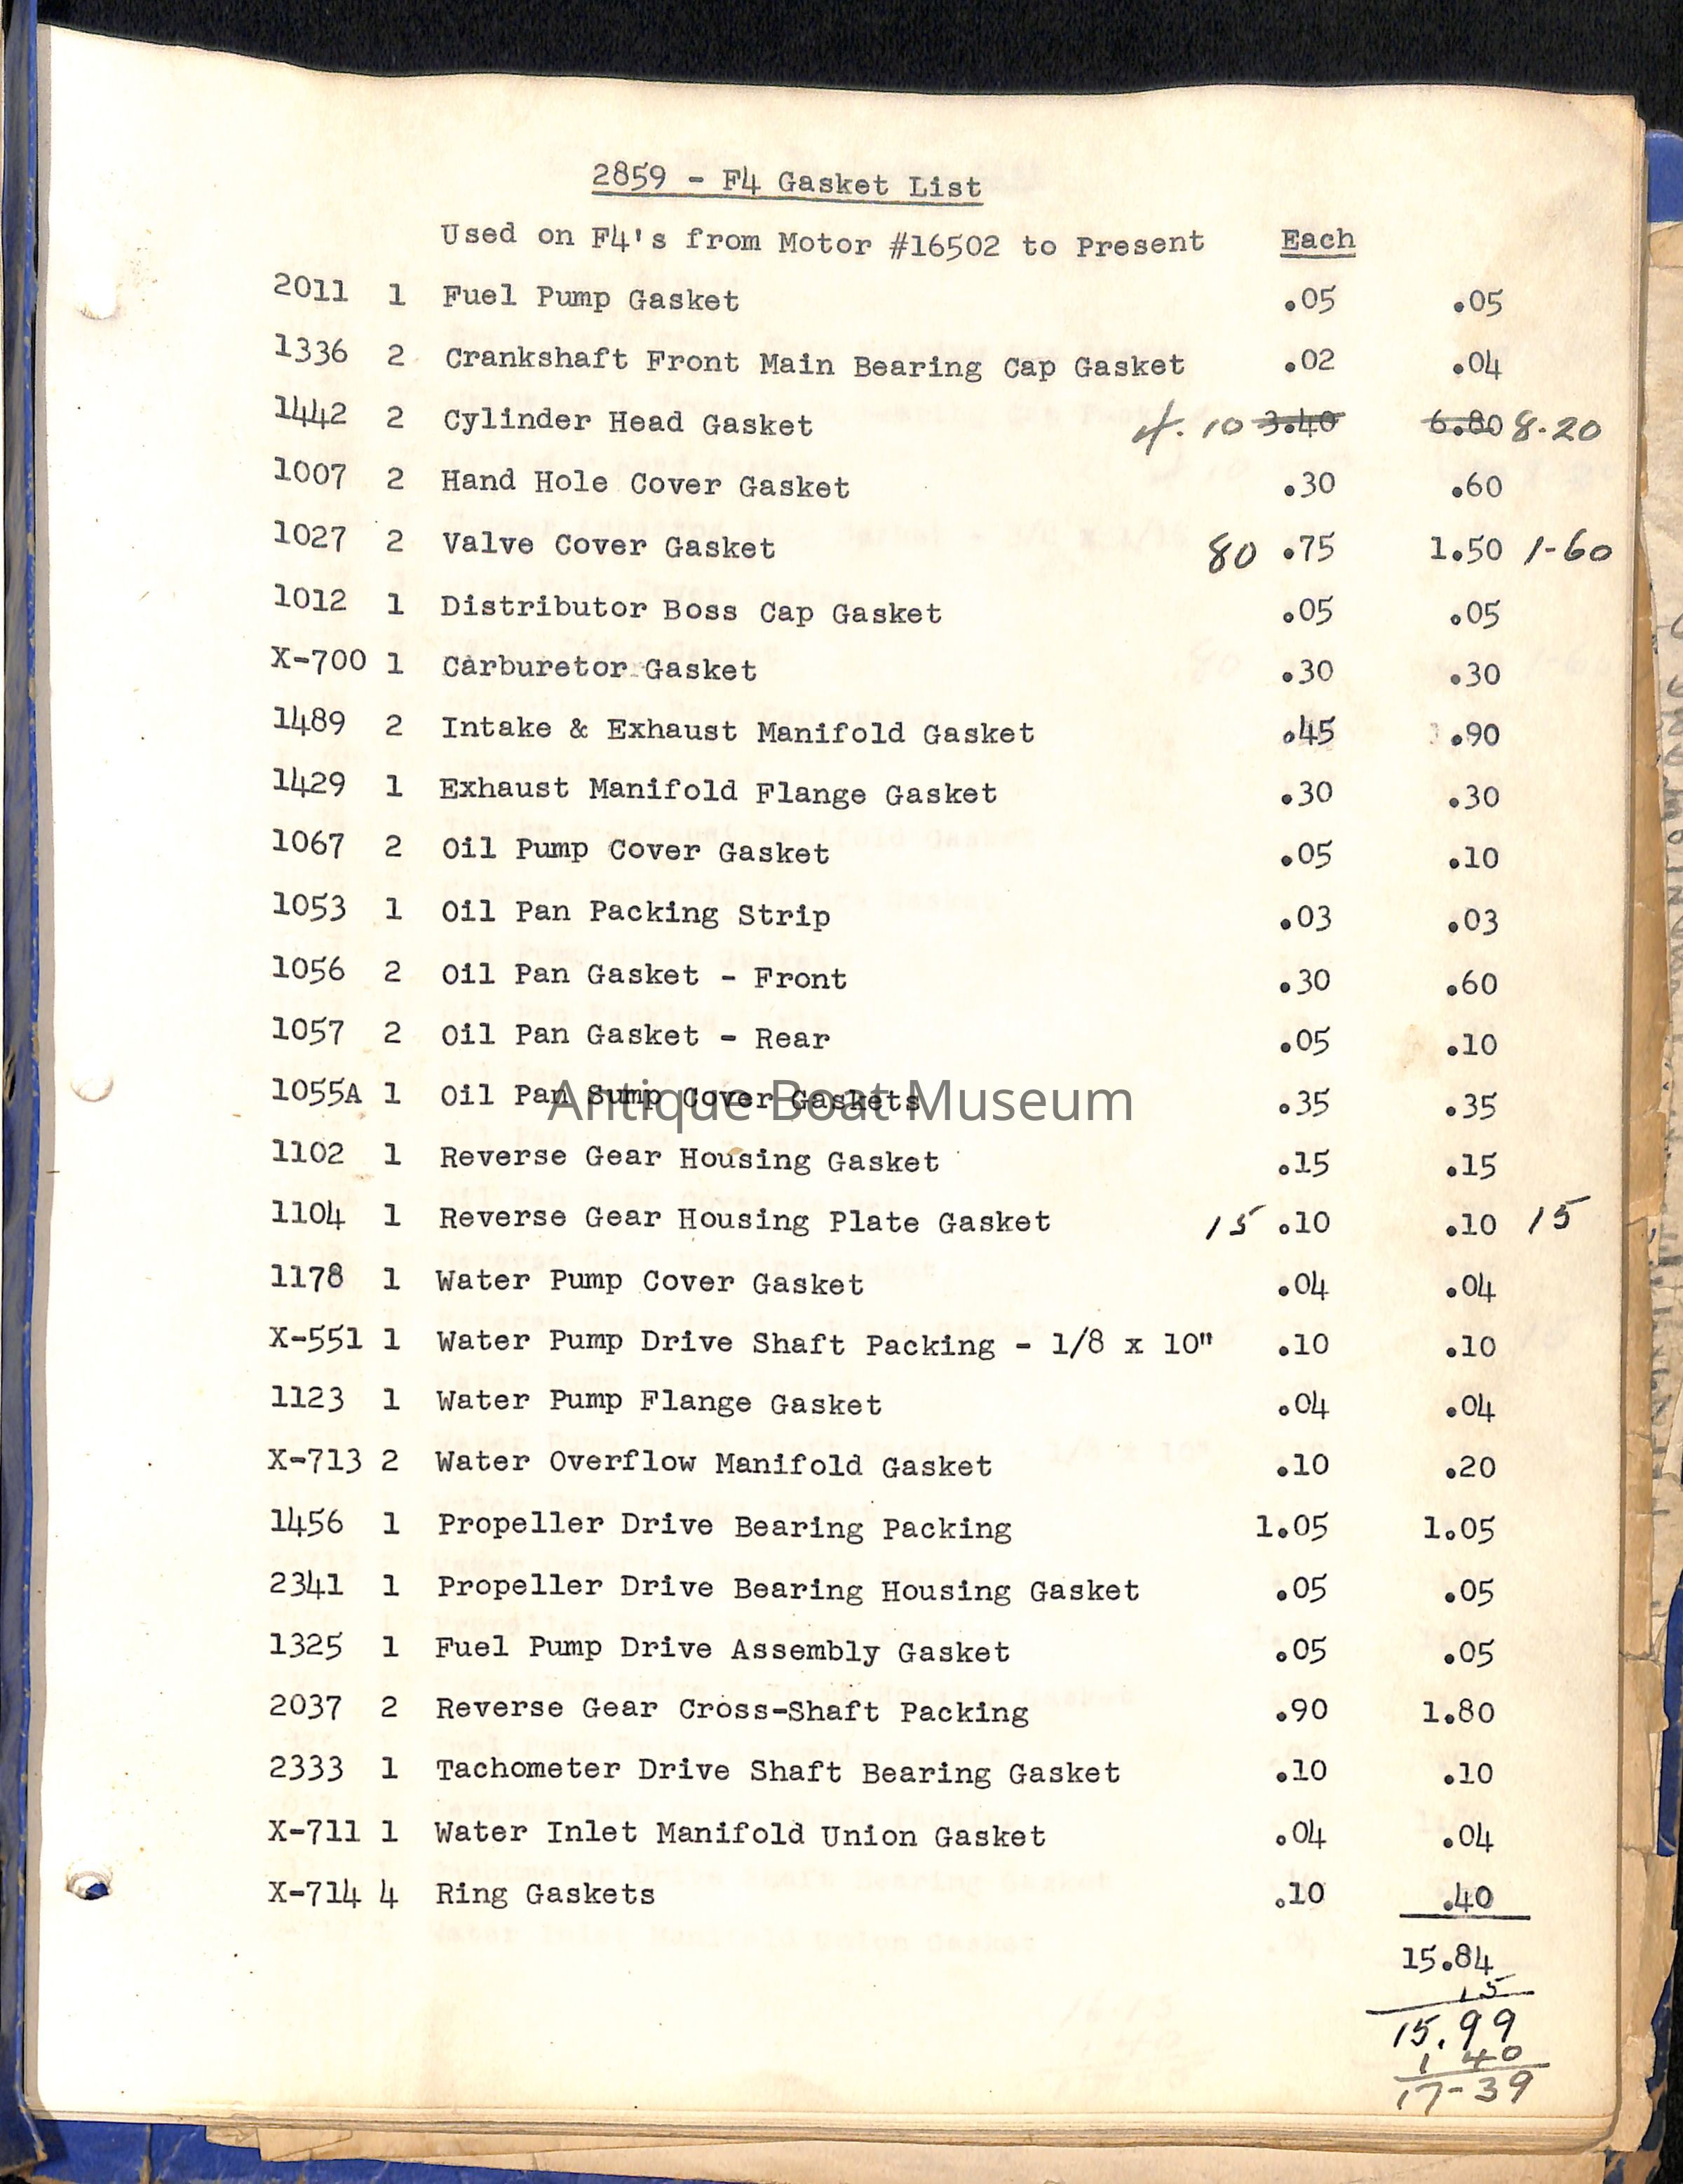 2859 - F4 Gasket List
Used on F4's from Motor #16502 to Present Each
2011 1 Fuel Pump Gasket .05 .05
1336 2 Crankshaft Front Main Bearing Cap Gasket .02 .04
1442 2 Cylinder Head Gasket 4.10 3.40 6.80 8.20
1007 2 Hand Hole Cover Gasket .30 .60
1027 2 Valve Cover Gasket 80 .75 1.50 1-60
1012 1 Distributor Boss Cap Gasket .05 .05
X-700 1 Carburetor Gasket .30 .30
1489 2 Intake & Exhaust Manifold Gasket .45 .90
1429 1 Exhaust Manifold Flange Gasket .30 .30
1067 2 Oil Pump Cover Gasket .05 .10
1053 1 Oil Pan Packing Strip .03 .03
1056 2 Oil Pan Gasket - Front .30 .60
1057 2 Oil Pan Gasket - Rear .05 .10
1055A 1 Oil Pan Sump Cover Gaskets .35 .35
Antique Boat Museum
1102 1 Reverse Gear Housing Gasket .15 .15
1104 1 Reverse Gear Housing Plate Gasket 15 .10 .10 15
1178 1 Water Pump Cover Gasket .04 .04
X-551 1 Water Pump Drive Shaft Packing - 1/8 x 10" .10 .10
1123 1 Water Pump Flange Gasket .04 .04
X-713 2 Water Overflow Manifold Gasket .10 .20
1456 1 Propeller Drive Bearing Packing 1.05 1.05
2341 1 Propeller Drive Bearing Housing Gasket .05 .05
1325 1 Fuel Pump Drive Assembly Gasket .05 .05
2037 2 Reverse Gear Cross-Shaft Packing .90 1.80
2333 1 Tachometer Drive Shaft Bearing Gasket .10 .10
X-711 1 Water Inlet Manifold Union Gasket .04 .04
X-714 4 Ring Gaskets .10 .40
15.84
15
15.99
1 40
17-39